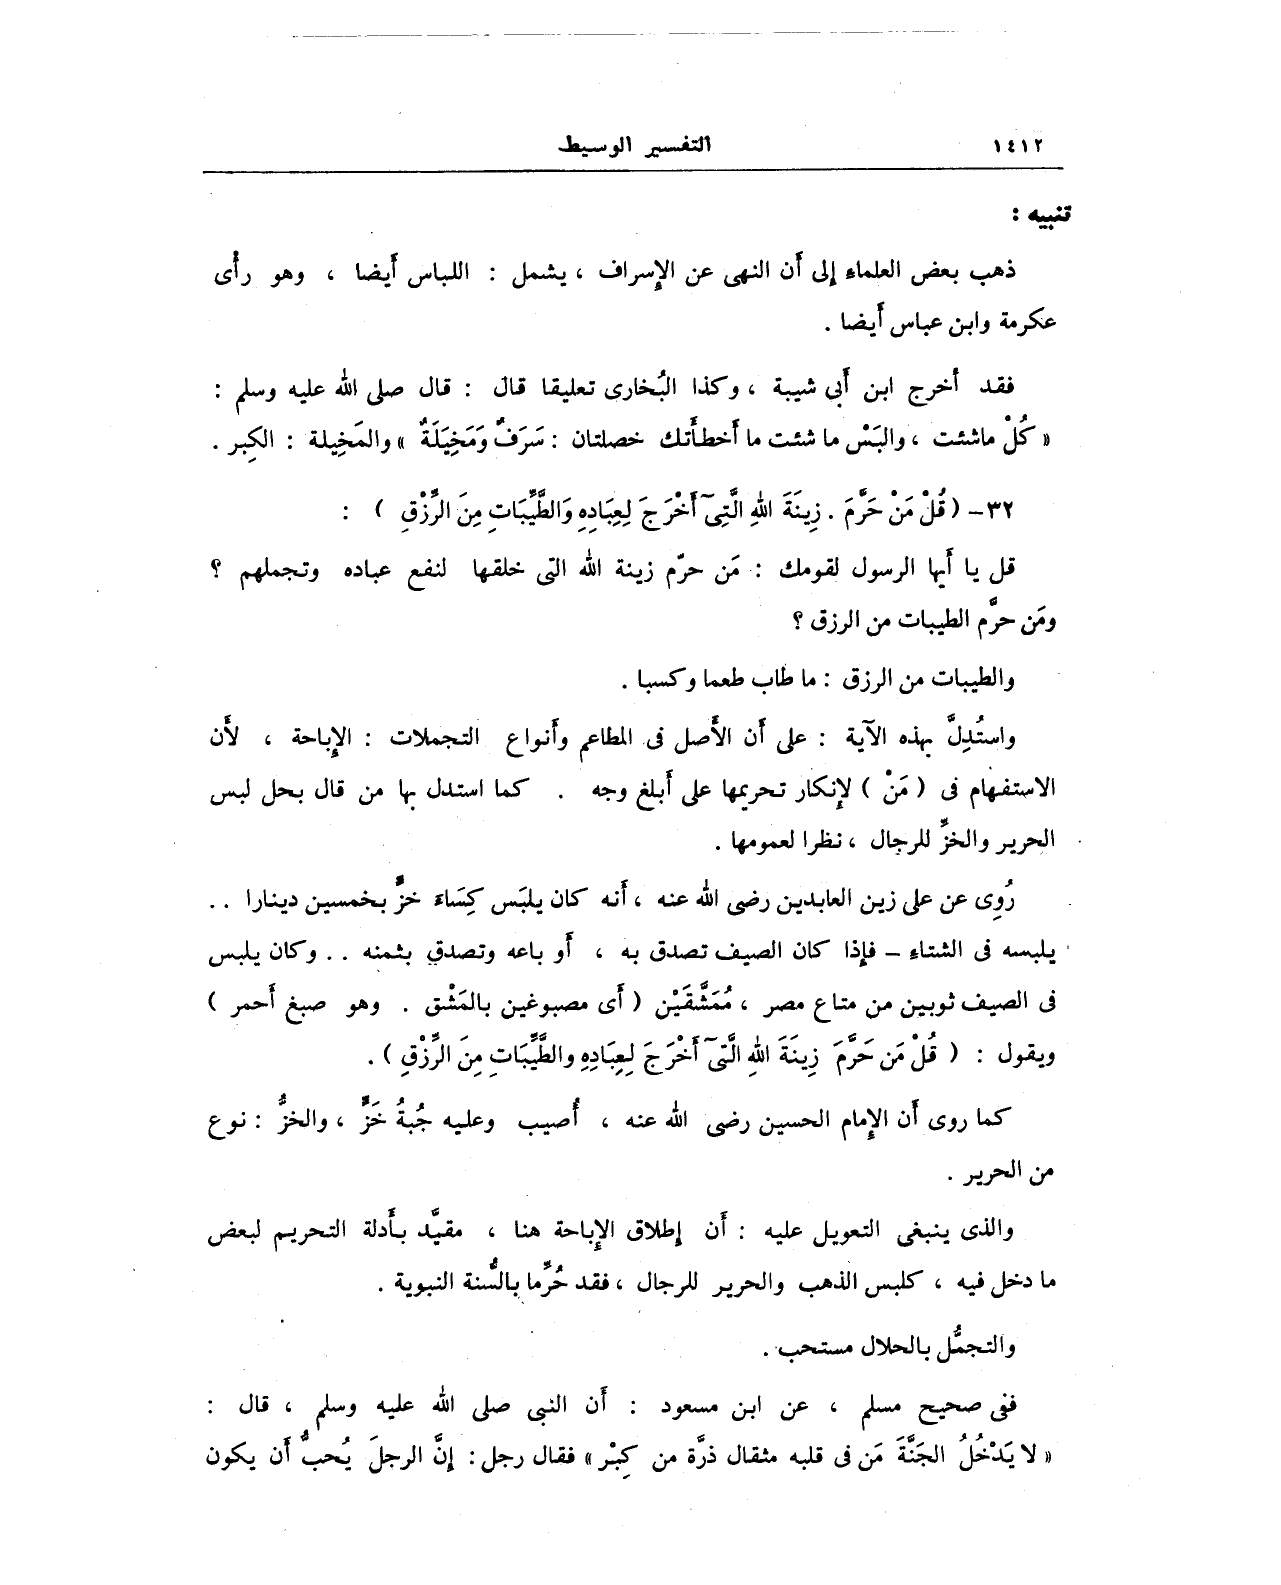 ١٤١٢ التفسير الوسيط
تنبيه :
ذهب بعض العلماء إلى أَن النهى عن الإِسراف ، يشمل : اللباس أَيضا ، وهو رأْى
عكرمة وابن عباس أَيضا .
فقد أخرج ابن أَبى شيبة ، وكذا البُخارى تعليقا قال : قال صلى الله عليه وسلم :
« كُلْ ماشئت ، والبَسْ ما شئت ما أَخطأَتك خصلتان : سَرَفٌ وَمَخِيَلَةٌ » والمَخِيلة : الكِبر .
٣٢– ( قُلْ مَنْ حَرَّمَ . زِينَةَ اللهِ الَّتِىٓ أَخْرَجَ لِعِبَادِهِ وَالطَّيِّبَاتِ مِنَ الرِّزْقِ ) :
قل يا أَيها الرسول لقومك : مَن حرّم زينة الله التى خلقها لنفع عباده وتجملهم ؟
ومَن حرَّم الطيبات من الرزق ؟
والطيبات من الرزق : ما طاب طعما وكسبا .
واستُدِلَّ بهذه الآية : على أَن الأَصل فى المطاعم وأَنواع التجملات : الإِباحة ، لأَن
الاستفهام فى ( مَنْ ) لإِنكار تحريمها على أَبلغ وجه . كما استدل بها من قال بحل لبس
الحرير والخزِّ للرجال ، نظرا لعمومها .
رُوِى عن على زين العابدين رضى الله عنه ، أَنه كان يلبَس كِسَاءَ خزٍّ بخمسين دينارا . .
يلبسه فى الشتاءِ – فإِذا كان الصيف تصدق به ، أَو باعه وتصدق بثمنه . . وكان يلبس
فى الصيف ثوبين من متاع مصر ، مُمَشَّقَيْن ( أَى مصبوغين بالمَشْق . وهو صبغ أَحمر )
ويقول : ( قُلْ مَن حَرَّمَ زِينَةَ اللهِ الَّتِىٓ أَخْرَجَ لِعِبَادِهِ والطَّيِّبَاتِ مِنَ الرِّزْقِ ) .
كما روى أَن الإِمام الحسين رضى الله عنه ، أُصيب وعليه جُبةُ خَزٍّ ، والخزُّ : نوع
من الحرير .
والذى ينبغى التعويل عليه : أَن إِطلاق الإِباحة هنا ، مقيَّد بأَدلة التحريم لبعض
ما دخل فيه ، كلبس الذهب والحرير للرجال ، فقد حُرِّما بالسُّنة النبوية .
والتجمُّل بالحلال مستحب .
ففى صحيح مسلم ، عن ابن مسعود : أَن النبى صلى الله عليه وسلم ، قال :
« لا يَدْخُلُ الجَنَّةَ مَن فى قلبه مثقال ذرَّة من كِبْر » فقال رجل : إِنَّ الرجلَ يُحبُّ أَن يكون